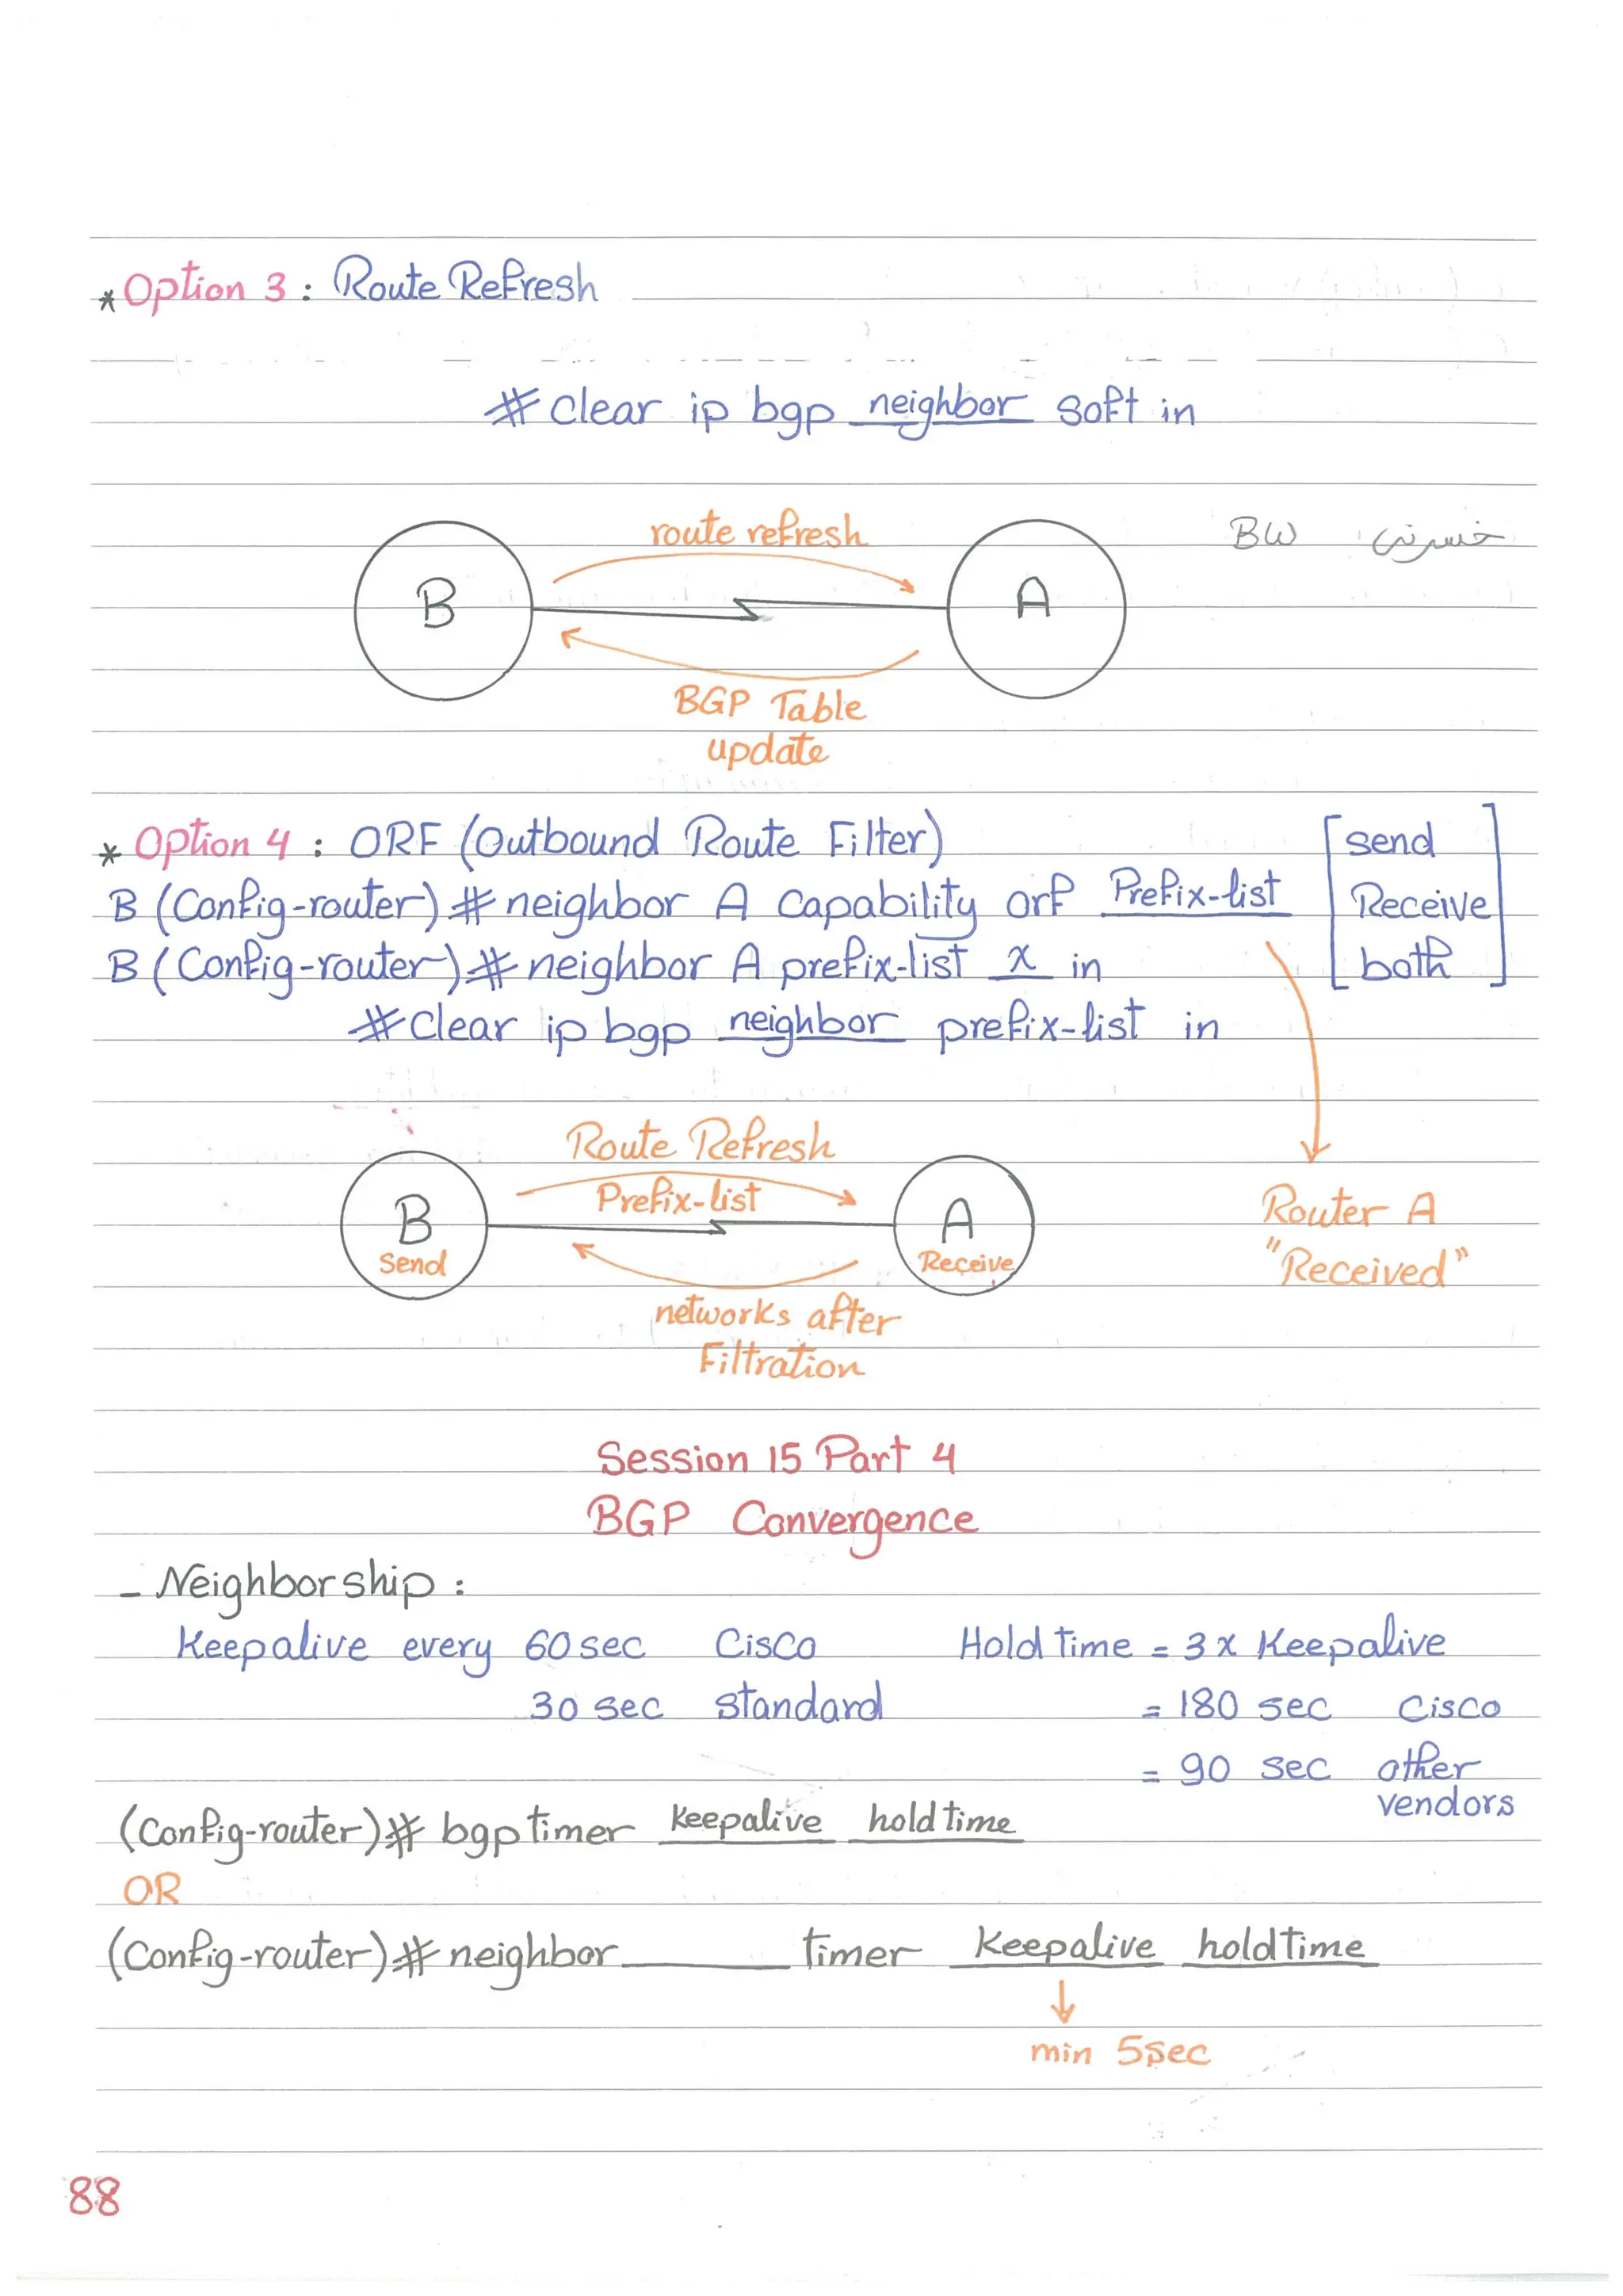 * Option 3 : Route Refresh
# clear ip bgp neighbor soft in
route refresh
BW خسرتى
B
A
BGP Table
update
* Option 4 : ORF (Outbound Route Filter)
[send
Receive
both]
B (Config-router)# neighbor A capability orf Prefix-list
B (Config-router)# neighbor A prefix-list x in
# clear ip bgp neighbor prefix-list in
Route Refresh
Prefix-list
B
Send
A
Receive
Router A
"Received"
networks after
Filtration
Session 15 Part 4
BGP Convergence
- Neighborship :
Keepalive every 60 sec Cisco Hold time = 3 x Keepalive
30 sec standard = 180 sec Cisco
= 90 sec other
vendors
(Config-router)# bgp timer Keepalive holdtime
OR
(Config-router)# neighbor ______ timer Keepalive holdtime
↓
min 5sec
88